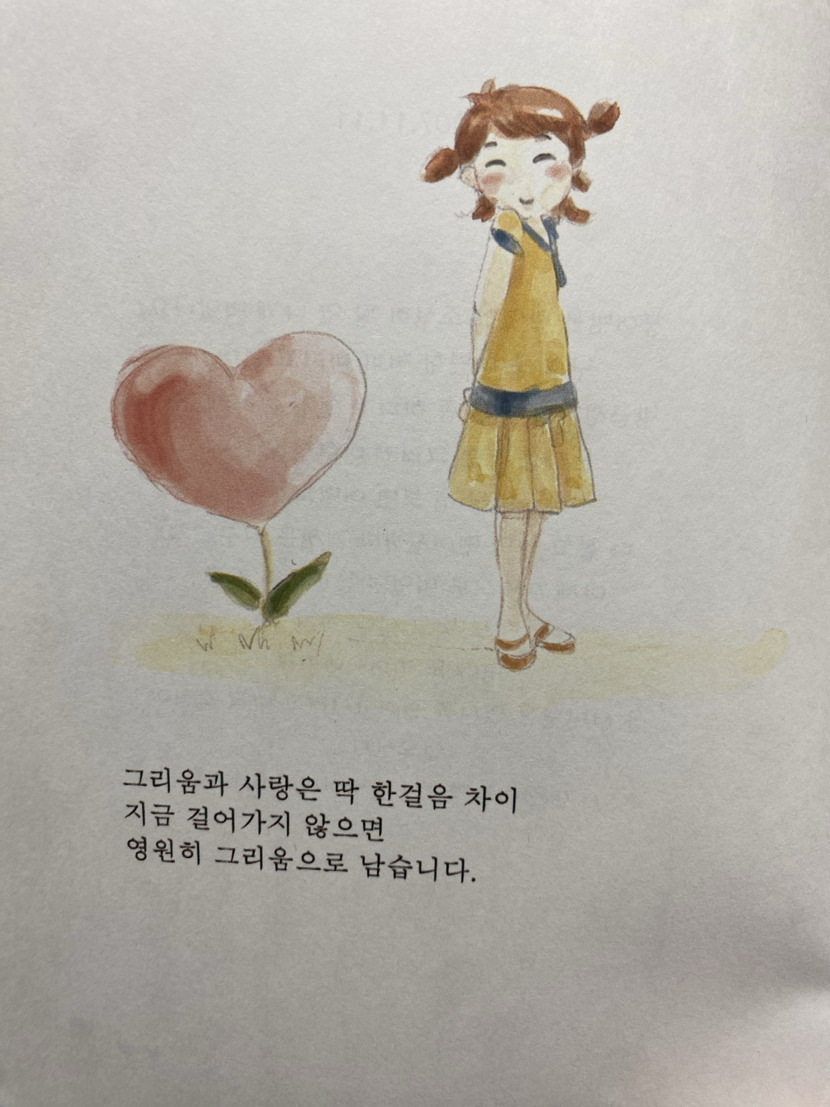 그리움과 사랑은 딱 한걸음 차이
지금 걸어가지 않으면
영원히 그리움으로 남습니다.